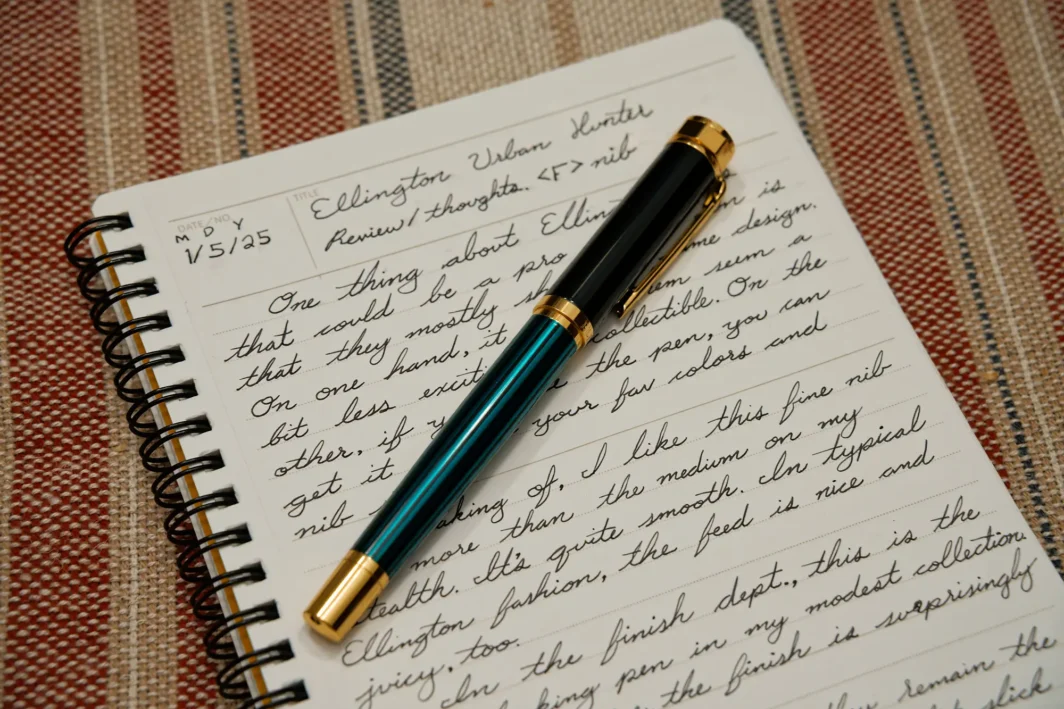 DATE/NO.
M D Y
1/5/25
TITLE
Ellington Urban Hunter
Review/thoughts. <F> nib
One thing about is
that could be a pro design.
that they mostly seem a
On one hand, it collectible. On the
bit less the pen, you can
other, if your fav colors and
get it
nib of, I like this fine nib
more than the medium on my
It's quite smooth. In typical
Ellington fashion, the feed is nice and
juicy, too.
In the finish dept., this is the
pen in my modest collection.
the finish is surprisingly
remain the
slick